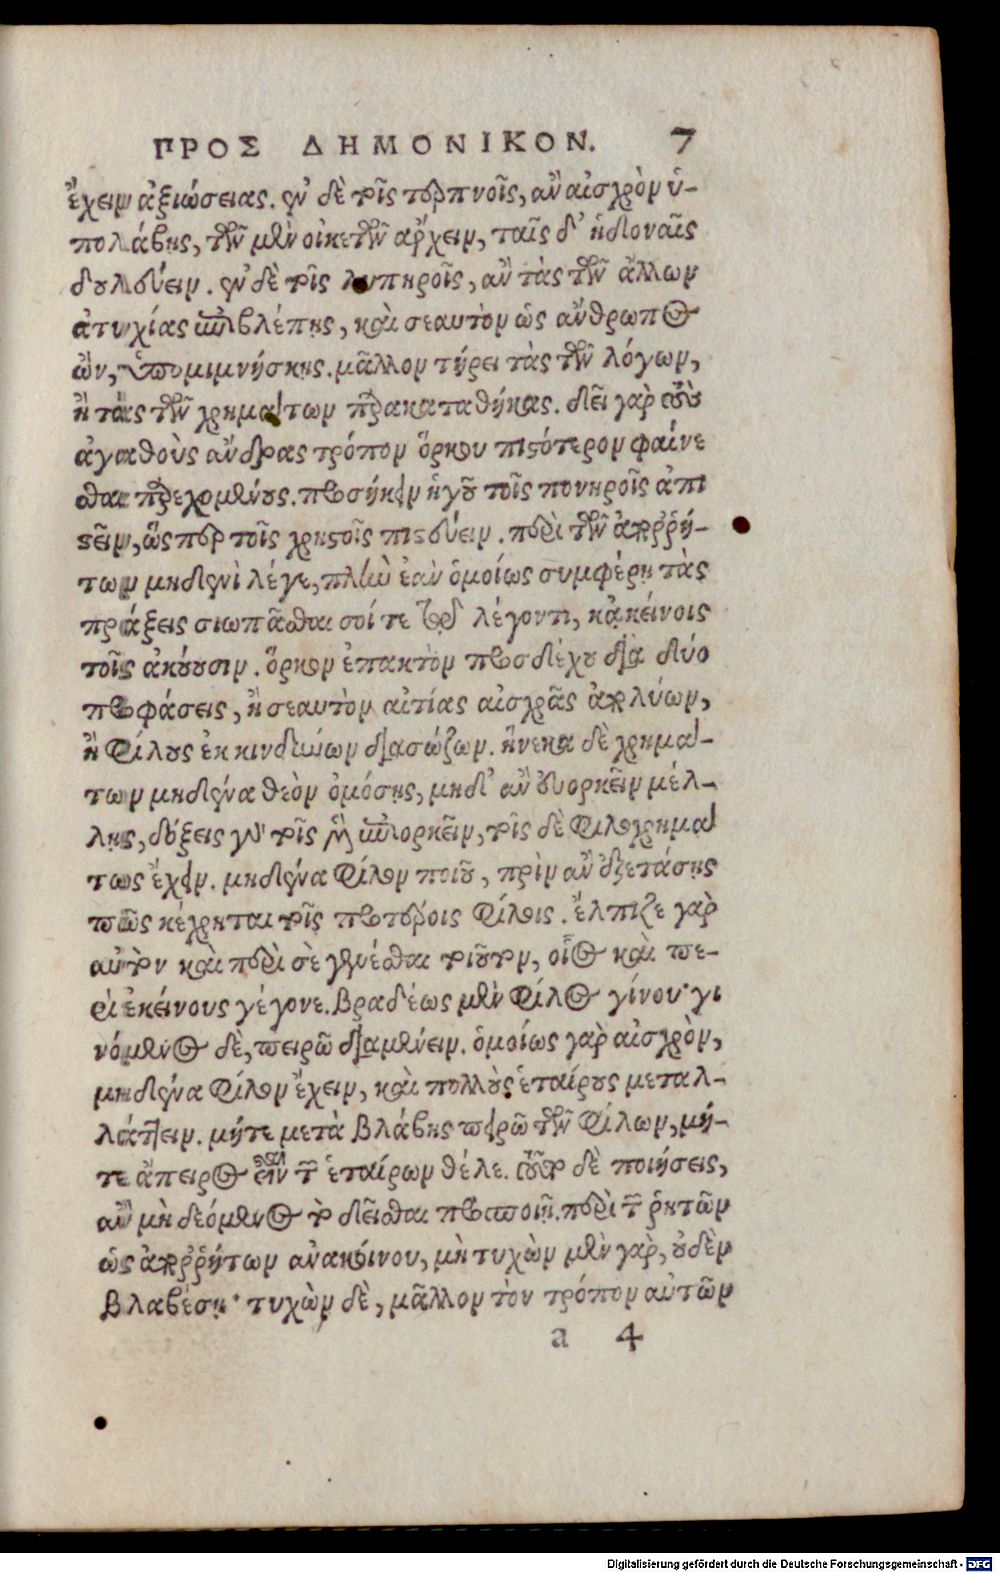 ΠΡΟΣ ΔΗΜΟΝΙΚΟΝ. 7
ἔχειν ἀξιώσειας. ἐν δὲ τοῖς τερπνοῖς, ἂν αἰσχρὸν ὑ-
πολάβῃς, τῶν μὲν οἰκετῶν ἄρχειν, ταῖς δ' ἡδοναῖς
δουλεύειν. ἐν δὲ τοῖς λυπηροῖς, ἂν τὰς τῶν ἄλλων
ἀτυχίας ἐπιβλέπῃς, καὶ σεαυτὸν ὡς ἄνθρωπος
ὢν, ὑπομιμνήσκῃς. μᾶλλον τήρει τὰς τῶν λόγων,
ἢ τὰς τῶν χρημάτων παρακαταθήκας. δεῖ γὰρ τοὺς
ἀγαθοὺς ἄνδρας τρόπον ὅρκου πιστότερον φαίνε
σθαι παρεχομένους. προσήκειν ἡγοῦ τοῖς πονηροῖς ἀπι
στεῖν, ὥσπερ τοῖς χρηστοῖς πιστεύειν. περὶ τῶν ἀπορρή-
των μηδενὶ λέγε, πλὴν ἐὰν ὁμοίως συμφέρῃ τὰς
πράξεις σιωπᾶσθαι σοί τε τῷ λέγοντι, κἀκείνοις
τοῖς ἀκούουσιν. ὅρκον ἐπακτὸν προσδέχου διὰ δύο
προφάσεις, ἢ σεαυτὸν αἰτίας αἰσχρᾶς ἀπολύων,
ἢ φίλους ἐκ κινδύνων διασώζων. ἕνεκα δὲ χρημά-
των μηδένα θεὸν ὀμόσῃς, μηδ' ἂν εὐορκεῖν μέλ-
λῃς, δόξεις γὰρ τοῖς μὲν ἐπιορκεῖν, τοῖς δὲ φιλοχρημά
τως ἔχειν. μηδένα φίλον ποιοῦ, πρὶν ἂν ἐξετάσῃς
πῶς κέχρηται τοῖς προτέροις φίλοις. ἔλπιζε γὰρ
αὐτὸν καὶ περὶ σὲ γενέσθαι τοιοῦτον, οἷος καὶ πε-
ρὶ ἐκείνους γέγονε. βραδέως μὲν φίλος γίνου· γι
νόμενος δὲ, πειρῶ διαμένειν. ὁμοίως γὰρ αἰσχρὸν,
μηδένα φίλον ἔχειν, καὶ πολλοὺς ἑταίρους μεταλ-
λάττειν. μήτε μετὰ βλάβης πειρῶ τῶν φίλων, μή-
τε ἄπειρος εἶναι τῶν ἑταίρων θέλε. τοῦτο δὲ ποιήσεις,
ἂν μὴ δεόμενος τὸ δεῖσθαι προσποιῇ. περὶ τῶν ῥητῶν
ὡς ἀπορρήτων ἀνακοίνου, μὴ τυχὼν μὲν γὰρ, οὐδὲν
βλαβέσῃ· τυχὼν δὲ, μᾶλλον τὸν τρόπον αὐτῶν
a 4
Digitalisierung gefördert durch die Deutsche Forschungsgemeinschaft - DFG